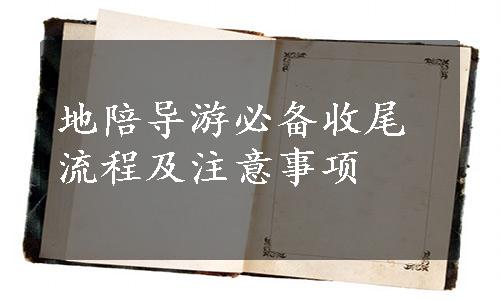 地陪导游必备收尾
流程及注意事项